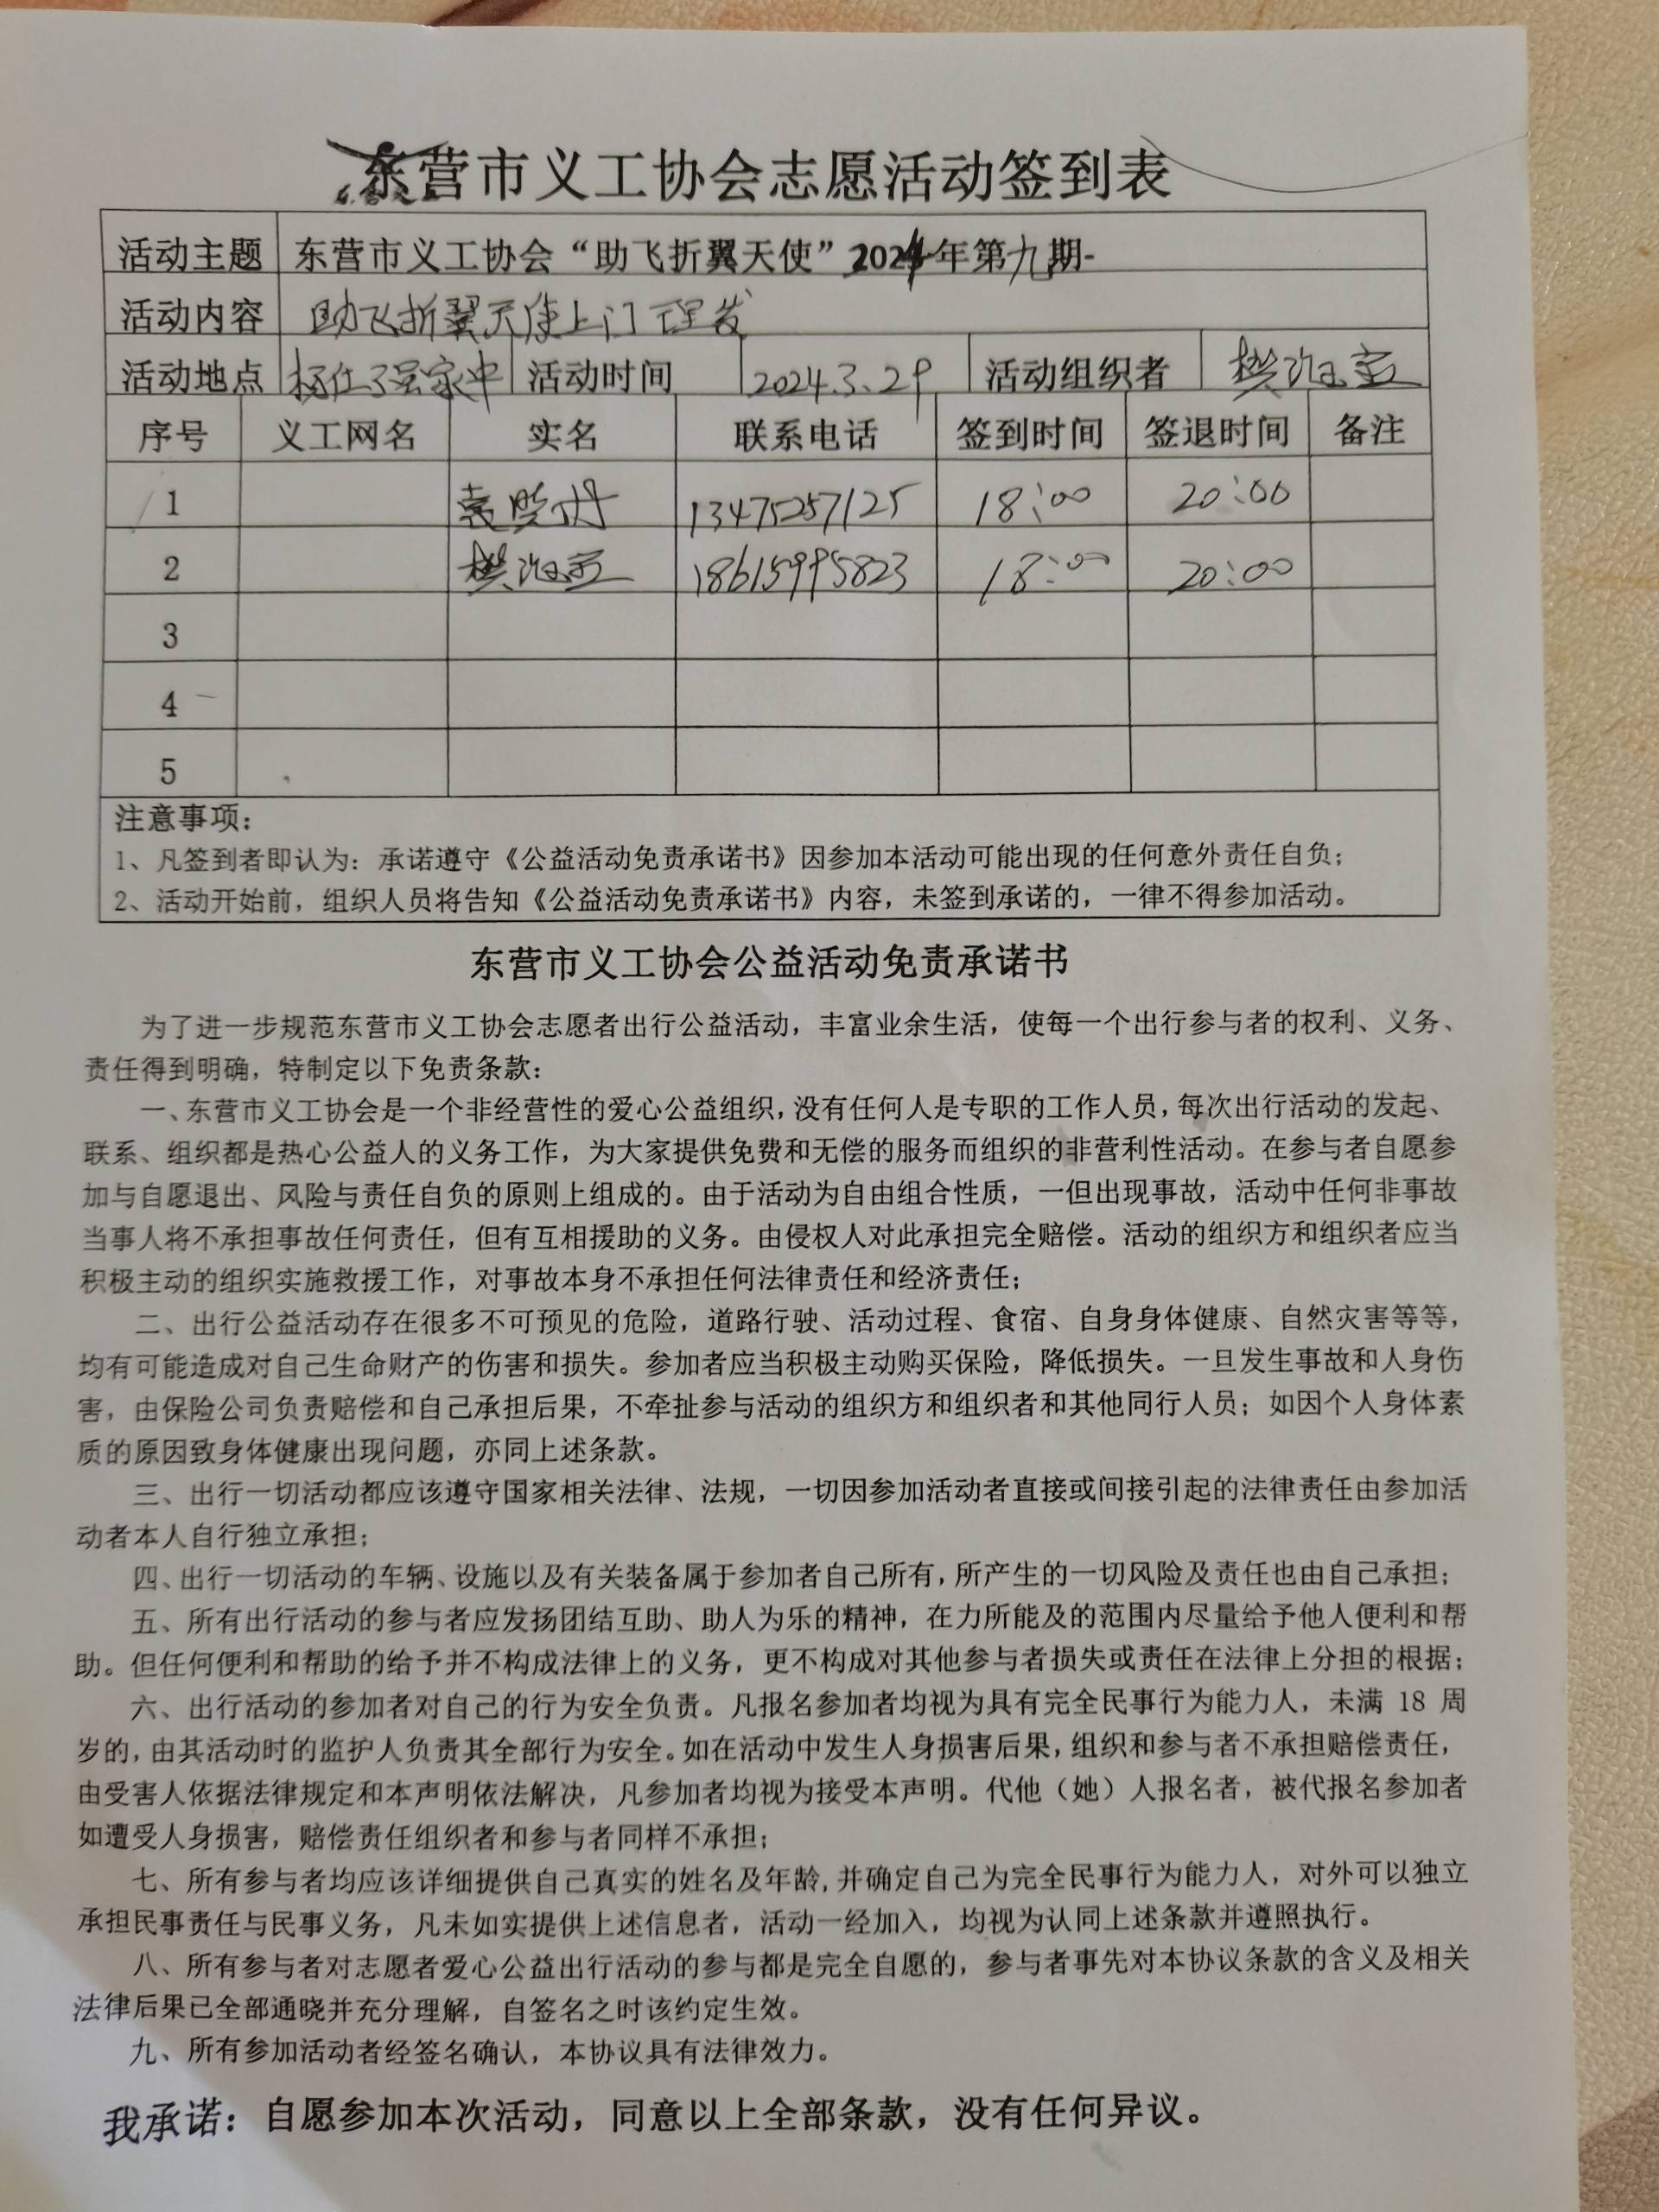 东营市义工协会志愿活动签到表
活动主题 东营市义工协会“助飞折翼天使”2024年第九期-
活动内容 助飞折翼天使上门理发
活动地点 家中 活动时间 2024.3.29 活动组织者 樊
序号 义工网名 实名 联系电话 签到时间 签退时间 备注
1 袁晓丹 13475257125 18:00 20:00
2 樊 18615995823 18:00 20:00
3
4
5
注意事项：
1、凡签到者即认为：承诺遵守《公益活动免责承诺书》因参加本活动可能出现的任何意外责任自负；
2、活动开始前，组织人员将告知《公益活动免责承诺书》内容，未签到承诺的，一律不得参加活动。
东营市义工协会公益活动免责承诺书
为了进一步规范东营市义工协会志愿者出行公益活动，丰富业余生活，使每一个出行参与者的权利、义务、
责任得到明确，特制定以下免责条款：
一、东营市义工协会是一个非经营性的爱心公益组织，没有任何人是专职的工作人员，每次出行活动的发起、
联系、组织都是热心公益人的义务工作，为大家提供免费和无偿的服务而组织的非营利性活动。在参与者自愿参
加与自愿退出、风险与责任自负的原则上组成的。由于活动为自由组合性质，一但出现事故，活动中任何非事故
当事人将不承担事故任何责任，但有互相援助的义务。由侵权人对此承担完全赔偿。活动的组织方和组织者应当
积极主动的组织实施救援工作，对事故本身不承担任何法律责任和经济责任；
二、出行公益活动存在很多不可预见的危险，道路行驶、活动过程、食宿、自身身体健康、自然灾害等等，
均有可能造成对自己生命财产的伤害和损失。参加者应当积极主动购买保险，降低损失。一旦发生事故和人身伤
害，由保险公司负责赔偿和自己承担后果，不牵扯参与活动的组织方和组织者和其他同行人员；如因个人身体素
质的原因致身体健康出现问题，亦同上述条款。
三、出行一切活动都应该遵守国家相关法律、法规，一切因参加活动者直接或间接引起的法律责任由参加活
动者本人自行独立承担；
四、出行一切活动的车辆、设施以及有关装备属于参加者自己所有，所产生的一切风险及责任也由自己承担；
五、所有出行活动的参与者应发扬团结互助、助人为乐的精神，在力所能及的范围内尽量给予他人便利和帮
助。但任何便利和帮助的给予并不构成法律上的义务，更不构成对其他参与者损失或责任在法律上分担的根据；
六、出行活动的参加者对自己的行为安全负责。凡报名参加者均视为具有完全民事行为能力人，未满 18 周
岁的，由其活动时的监护人负责其全部行为安全。如在活动中发生人身损害后果，组织和参与者不承担赔偿责任，
由受害人依据法律规定和本声明依法解决，凡参加者均视为接受本声明。代他（她）人报名者，被代报名参加者
如遭受人身损害，赔偿责任组织者和参与者同样不承担；
七、所有参与者均应该详细提供自己真实的姓名及年龄,并确定自己为完全民事行为能力人，对外可以独立
承担民事责任与民事义务，凡未如实提供上述信息者，活动一经加入，均视为认同上述条款并遵照执行。
八、所有参与者对志愿者爱心公益出行活动的参与都是完全自愿的，参与者事先对本协议条款的含义及相关
法律后果已全部通晓并充分理解，自签名之时该约定生效。
九、所有参加活动者经签名确认，本协议具有法律效力。
我承诺：自愿参加本次活动，同意以上全部条款，没有任何异议。